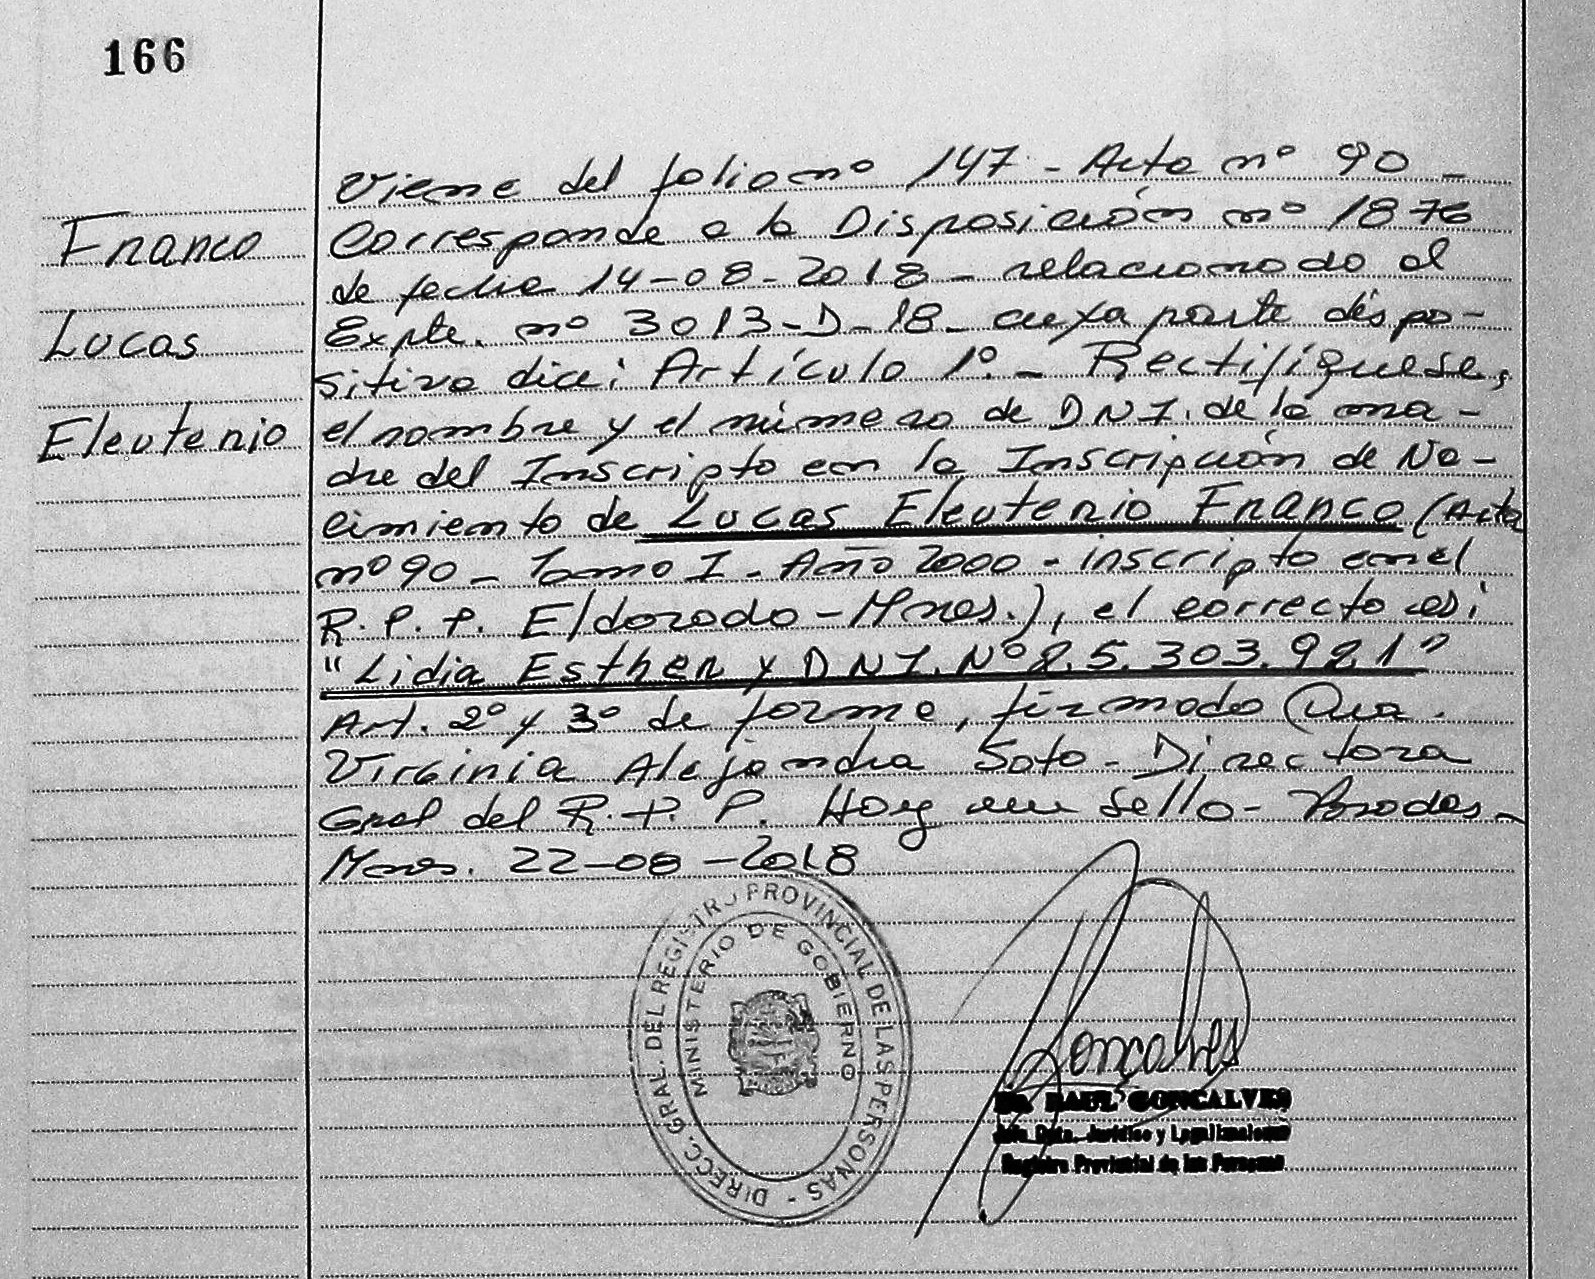 166
Franco
Lucas
Eleuterio
Viene del folio nº 147 - Acta nº 90 -
Corresponde a la Disposición nº 1876
de fecha 14-08-2018 - relacionado al
Expte. nº 3013-D-18- cuya parte dispo-
sitiva dice: Artículo 1º.- Rectifíquese,
el nombre y el número de DNI. de la ma-
dre del Inscripto en la Inscripción de Na-
cimiento de Lucas Eleuterio Franco (Acta
nº 90 - Tomo I - Año 2000 - inscripto en el
R. P. P. Eldorado - Mnes.), el correcto es:
"Lidia Esther y DNI. Nº 25.303.921"
Art. 2º y 3º de forma, firmado Dra.
Virginia Alejandra Soto - Directora
Gral del R. P. P. Hay un Sello - Posadas -
Mnes. 22-08-2018
DIRECC. GRAL. DEL REGISTRO PROVINCIAL DE LAS PERSONAS -
MINISTERIO DE GOBIERNO
Goncalves
DR. RAUL GONCALVES
Jefe Dpto. Jurídico y Legalizaciones
Registro Provincial de las Personas